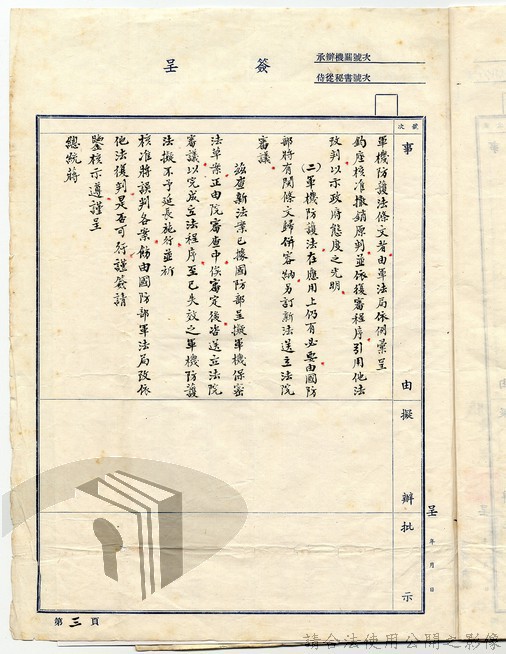 簽呈
承辦機關號次
侍從秘書號次
號次
事由
擬辦
批示
呈 年 月 日
軍機防護法條文者由軍法局依例彙呈
鈞座核准撤銷原判並依復審程序引用他法
改判以示政府態度之光明
(二)軍機防護法在應用上仍有必要由國防
部將有關條文歸併容納另訂新法送立法院
審議
茲查新法業已據國防部呈擬軍機保密
法草案正由院審查中俟審定後咨送立法院
審議以完成立法程序至已失效之軍機防護
法擬不予延長施行並祈
核准將誤判各案飭由國防部軍法局改依
他法復判是否可行謹簽請
鑒核示遵謹呈
總統蔣
第三頁
請合法使用公開之影像